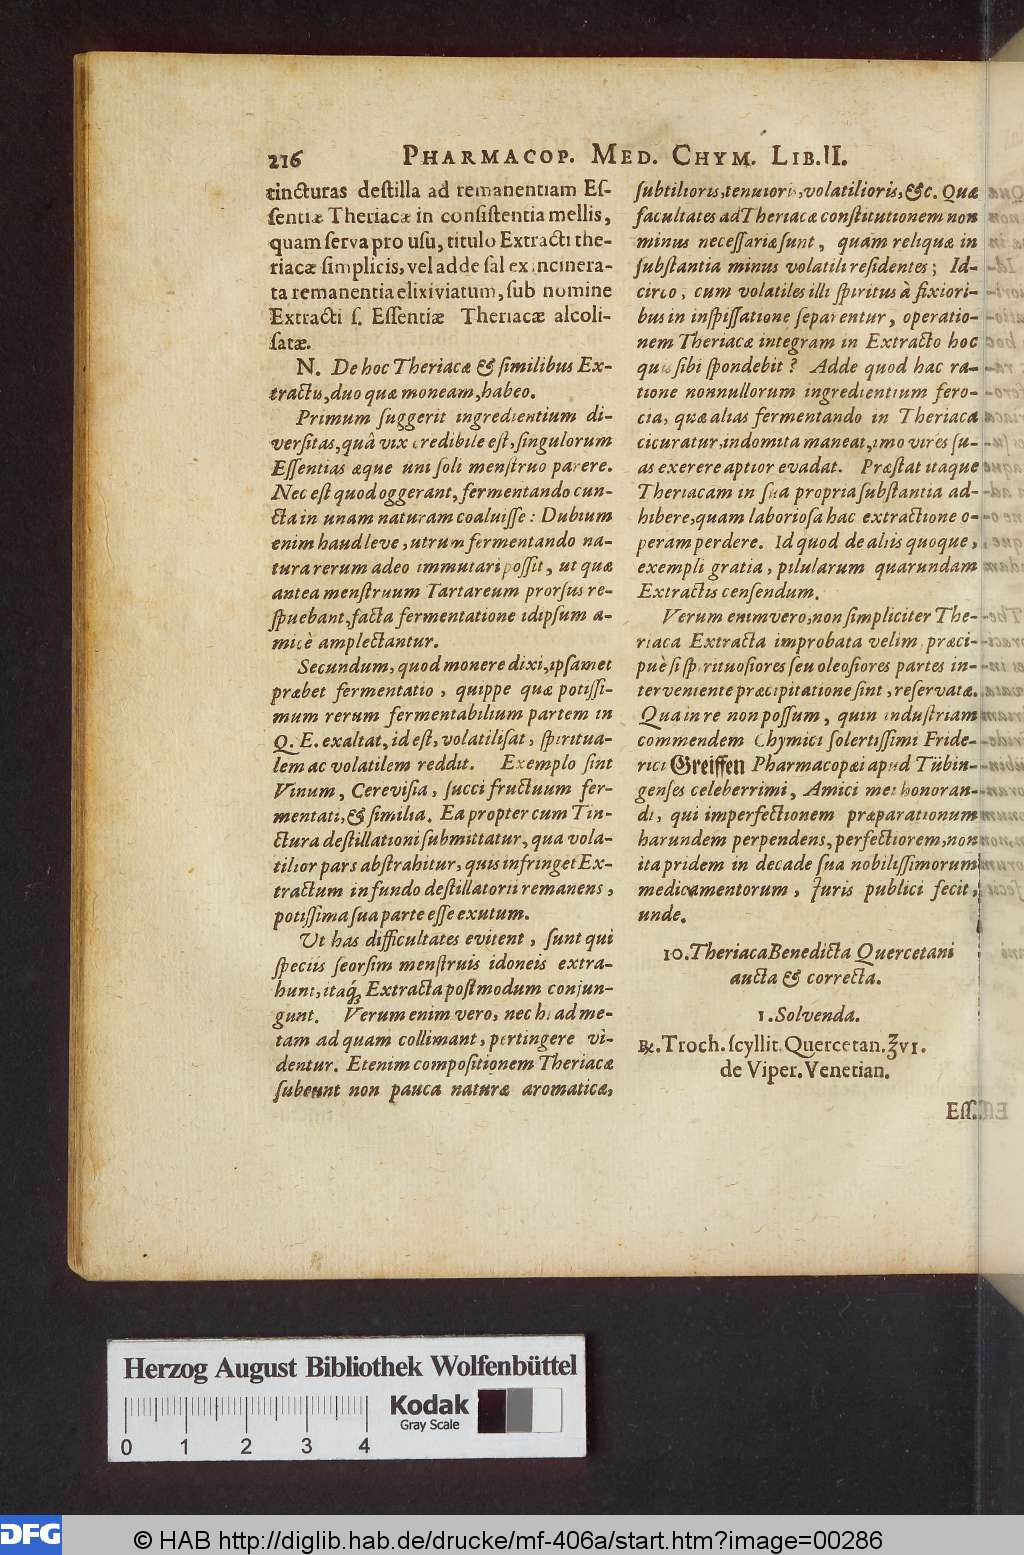 216 PHARMACOP. MED. CHYM. LIB. II.
tincturas deſtilla ad remanentiam Eſ-
ſentiæ Theriacæ in conſiſtentia mellis,
quam ſerva pro uſu, titulo Extracti the-
riacæ ſimplicis, vel adde ſal ex incinera-
ta remanentia elixiviatum, ſub nomine
Extracti ſ. Eſſentiæ Theriacæ alcoli-
ſatæ.
N. De hoc Theriacæ & ſimilibus Ex-
tractis, duo quæ moneam, habeo.
Primum ſuggerit ingredientium di-
verſitas, quâ vix credibile eſt, ſingulorum
Eſſentias æque uni ſoli menſtruo parere.
Nec eſt quod oggerant, fermentando cun-
cta in unam naturam coaluiſſe: Dubium
enim haud leve, utrum fermentando na-
tura rerum adeo immutari poſſit, ut quæ
antea menſtruum Tartareum prorſus re-
ſpuebant, facta fermentatione idipſum a-
micè amplectantur.
Secundum, quod monere dixi, ipſamet
præbet fermentatio, quippe quæ potiſſi-
mum rerum fermentabilium partem in
Q. E. exaltat, id eſt, volatiliſat, ſpiritua-
lem ac volatilem reddit. Exemplo ſint
Vinum, Cereviſia, ſucci fructuum fer-
mentati, & ſimilia. Ea propter cum Tin-
ctura deſtillationi ſubmittatur, qua vola-
tilior pars abſtrahitur, quis infringet Ex-
tractum in fundo deſtillatorii remanens,
potiſſima ſua parte eſſe exutum.
Ut has difficultates evitent, ſunt qui
ſpeciis ſeorſim menſtruis idoneis extra-
hunt, itaq́ꝫ Extracta poſtmodum conjun-
gunt. Verum enim vero, nec hi ad me-
tam ad quam collimant, pertingere vi-
dentur. Etenim compoſitionem Theriacæ
ſubeunt non pauca naturæ aromaticæ,
ſubtilioris, tenuioris, volatilioris, &c. Quæ
facultates ad Theriacæ conſtitutionem non
minus neceſſariæ ſunt, quam reliquæ in
ſubſtantia minus volatili reſidentes; Id-
circo, cum volatiles illi ſpiritus à fixiori-
bus in inſpiſſatione ſeparentur, operatio-
nem Theriacæ integram in Extracto hoc
quis ſibi ſpondebit? Adde quod hac ra-
tione nonnullorum ingredientium fero-
cia, quæ alias fermentando in Theriaca
cicuratur, indomita maneat, imo vires ſu-
as exerere aptior evadat. Præſtat itaque
Theriacam in ſua propria ſubſtantia ad-
hibere, quam laborioſa hac extractione o-
peram perdere. Id quod de aliis quoque,
exempli gratia, pilularum quarundam
Extractis cenſendum.
Verum enimvero, non ſimpliciter The-
riaca Extracta improbata velim, præci-
puè ſi ſpirituoſiores ſeu oleoſiores partes in-
terveniente præcipitatione ſint, reſervatæ.
Qua in re non poſſum, quin induſtriam
commendem Chymici ſolertiſſimi Fride-
rici Greiffen Pharmacopæi apud Tübin-
genſes celeberrimi, Amici mei honoran-
di, qui imperfectionem præparationum
harundem perpendens, perfectiorem, non
ita pridem in decade ſua nobiliſſimorum
medicamentorum, Juris publici fecit,
unde.
10. Theriaca Benedicta Quercetani
aucta & correcta.
1. Solvenda.
℞. Troch. ſcyllit. Quercetan. ʒvi.
de Viper. Venetian.
Eſſ.
Herzog August Bibliothek Wolfenbüttel
Kodak
Gray Scale
0 1 2 3 4
DFG
© HAB http://diglib.hab.de/drucke/mf-406a/start.htm?image=00286